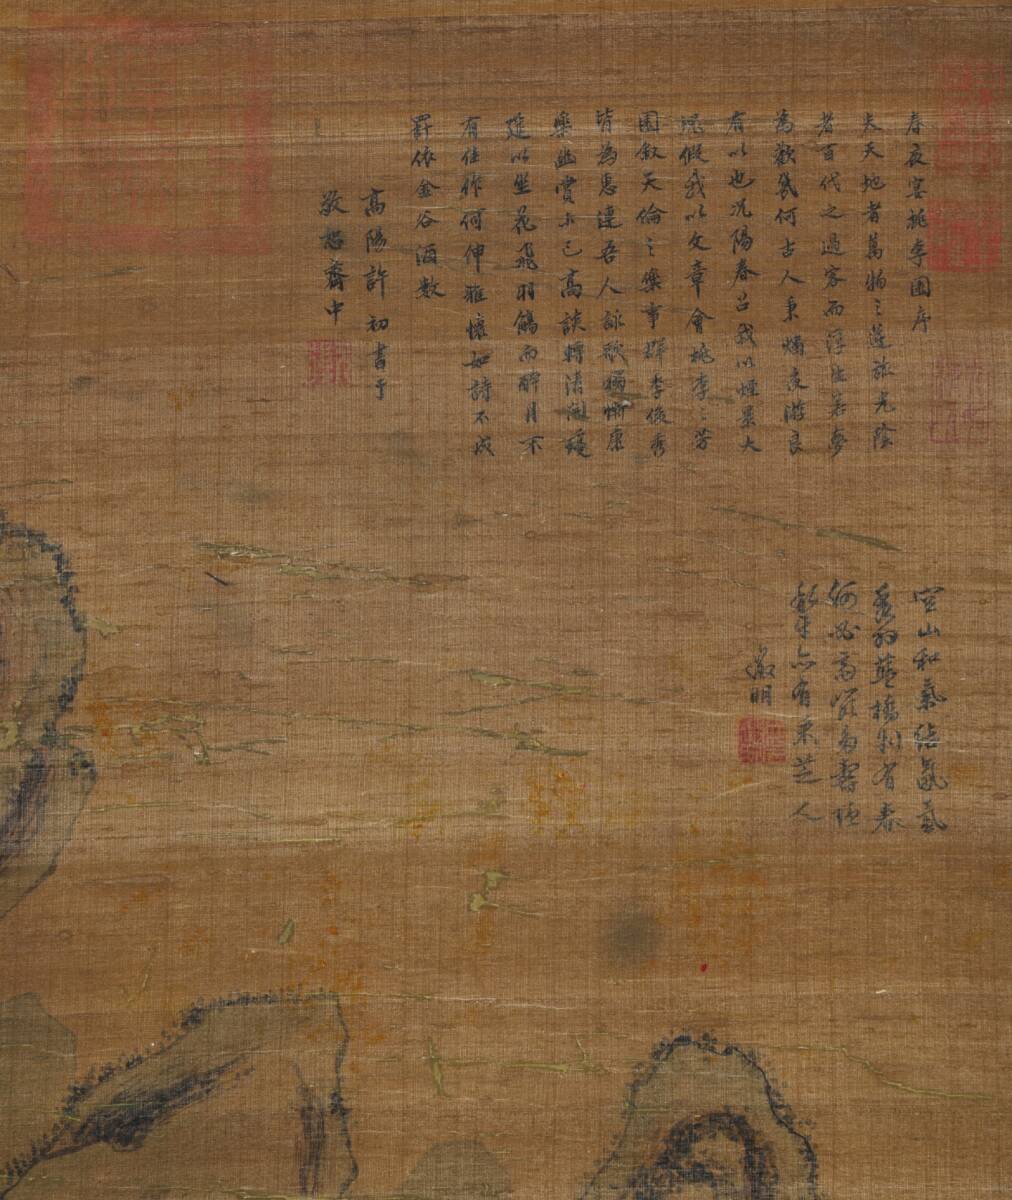 春夜宴桃李園序
夫天地者萬物之逆旅光陰
者百代之過客而浮生若夢
為歡幾何古人秉燭夜游良
有以也况陽春召我以煙景大
塊假我以文章會桃李之芳
園敘天倫之樂事群季俊秀
皆為惠連吾人詠歌獨慚康
樂幽賞未已高談轉清開瓊
筵以坐花飛羽觴而醉月不
有佳作何伸雅懷如詩不成
罰依金谷酒數
高陽許初書于
敬恕齋中
空山和氣結氤氳
藍橋別有春
何必高
亦有采芝人
徵明